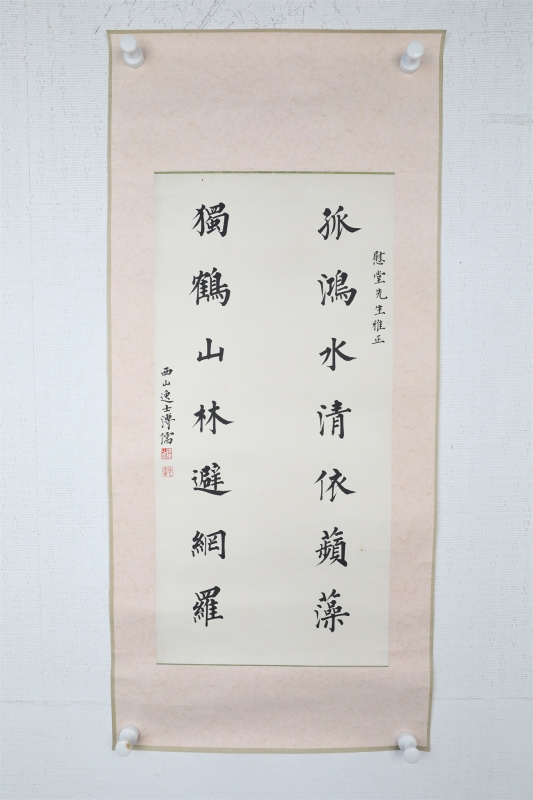 孤鴻水清依蘋藻
慰堂先生雅正
獨鶴山林避網羅
西山逸士溥儒